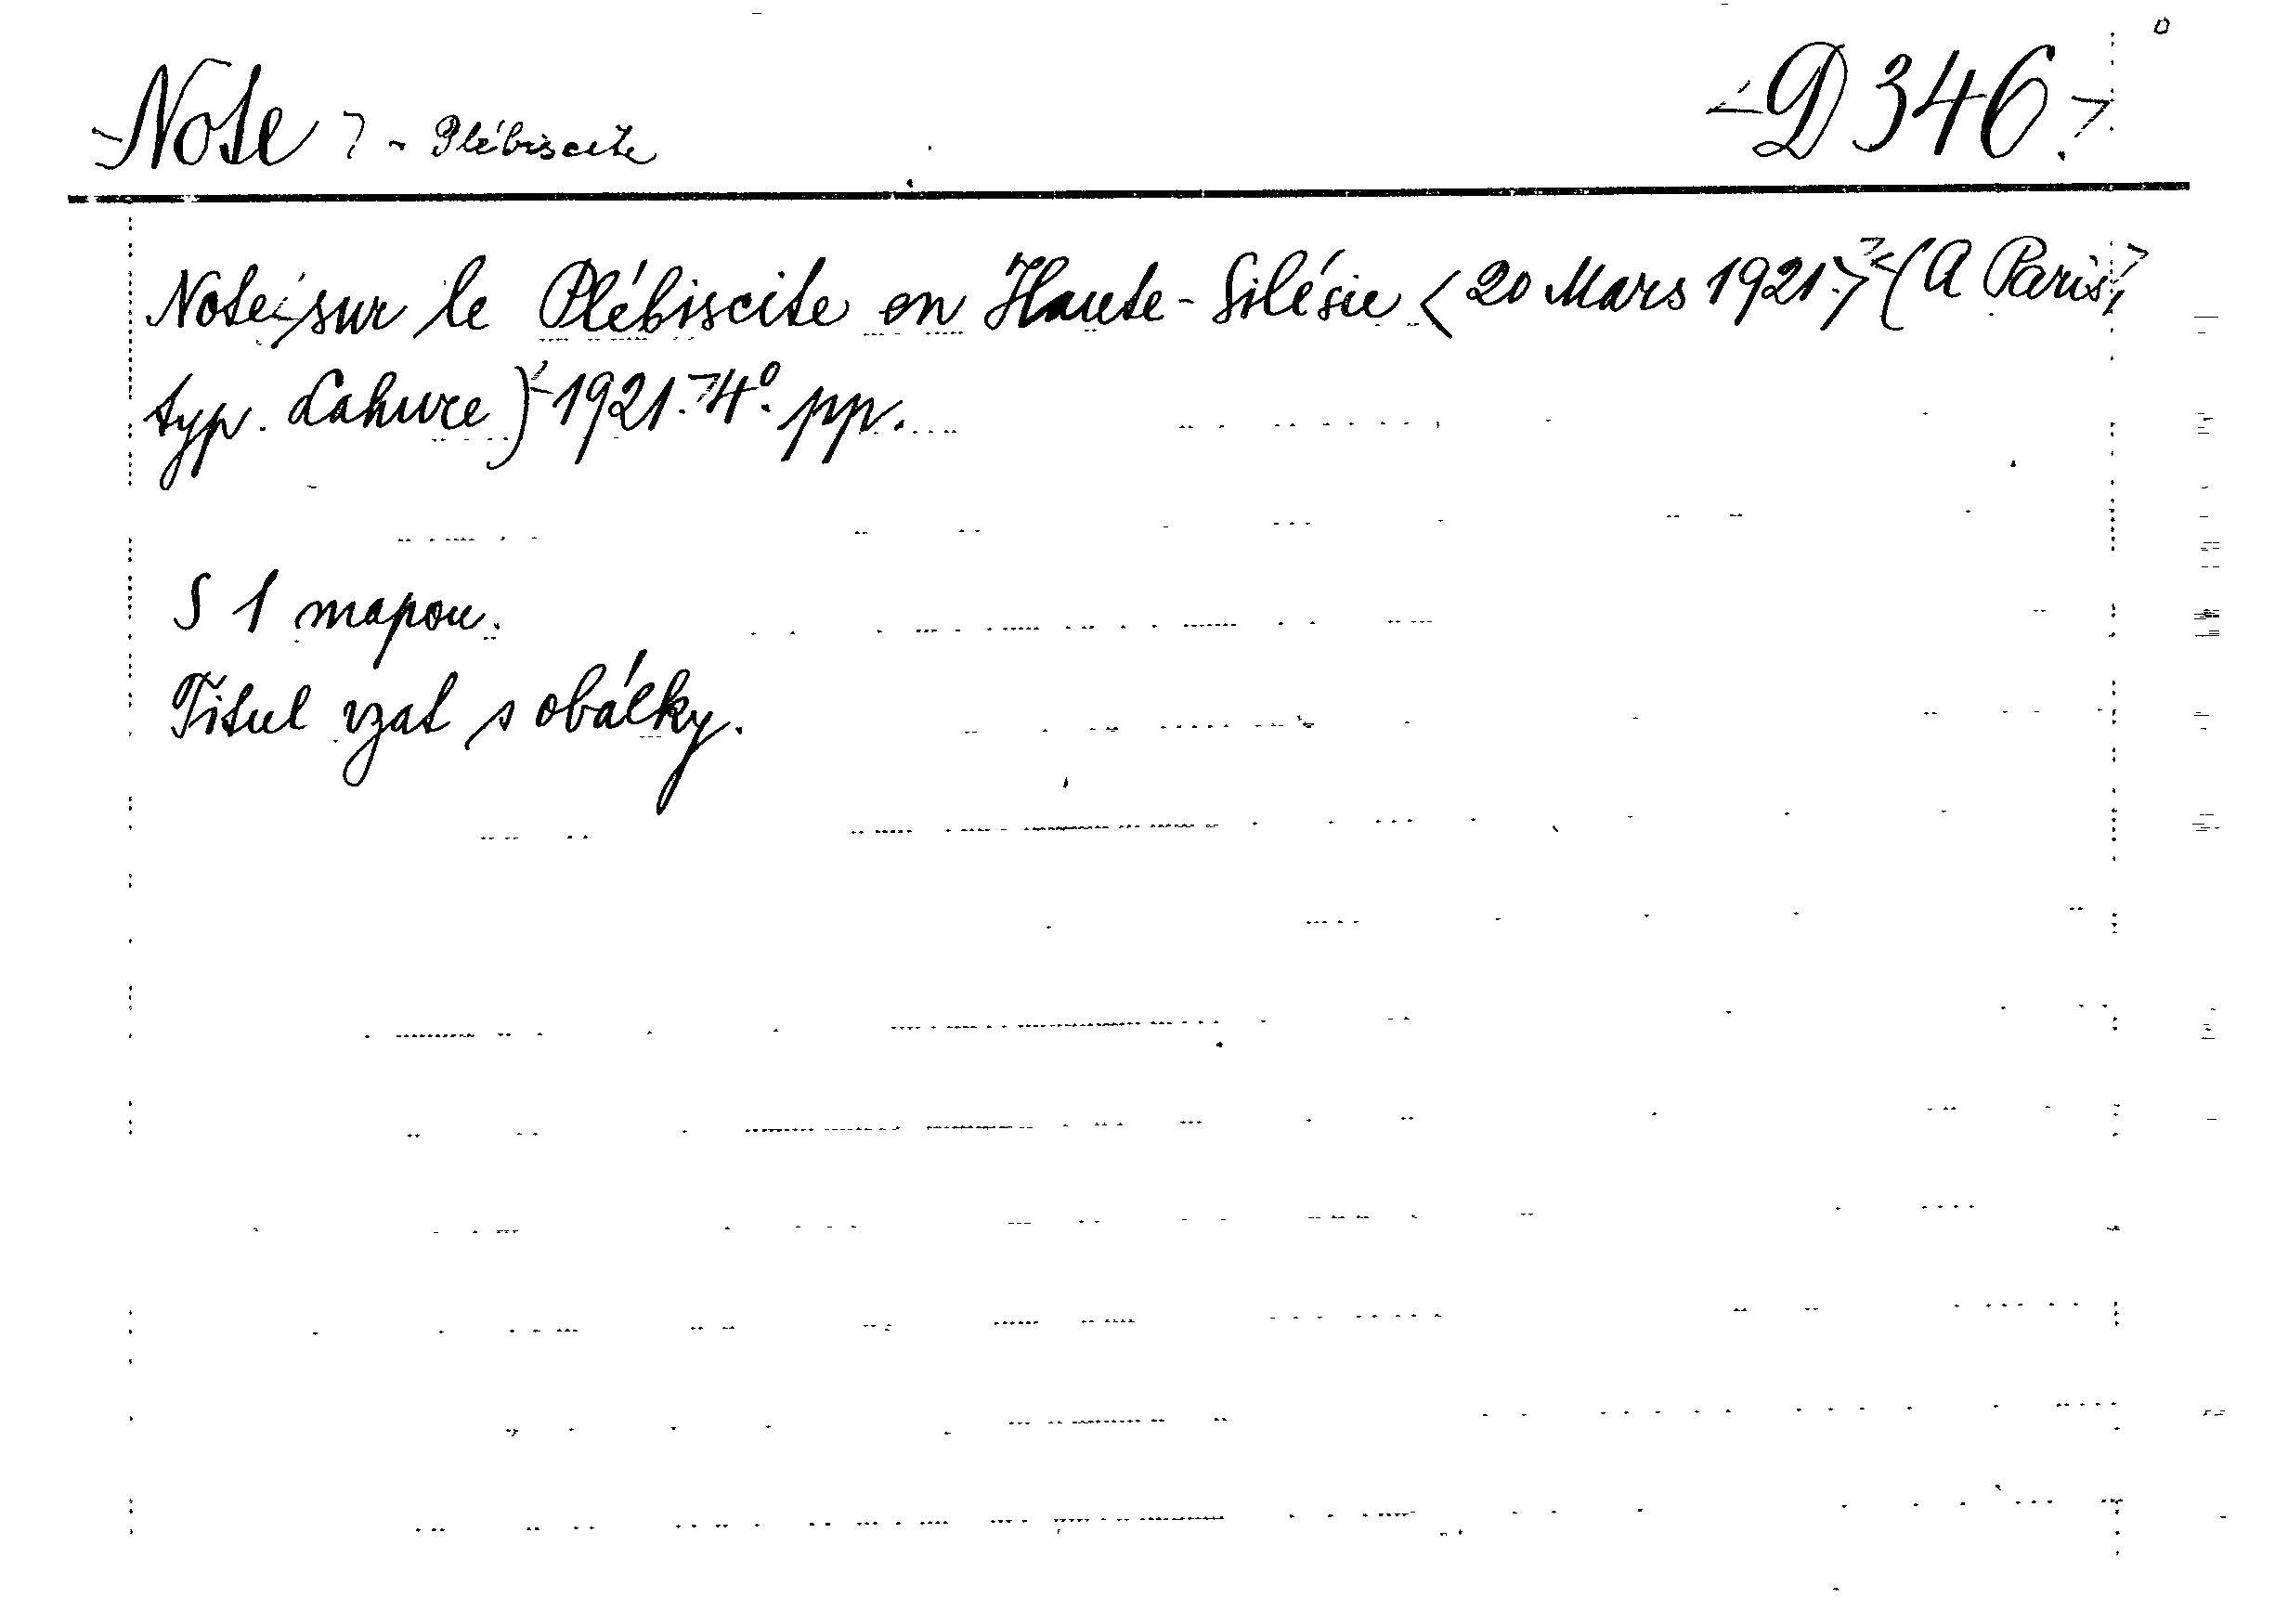 Note - Plébiscite D 346.
Note sur le Plébiscite en Haute-Silésie <20 Mars 1921.> (A Paris,
typ. Lahure) 1921. 4º. pp.
S 1 mapou.
Titul vzat s obálky.